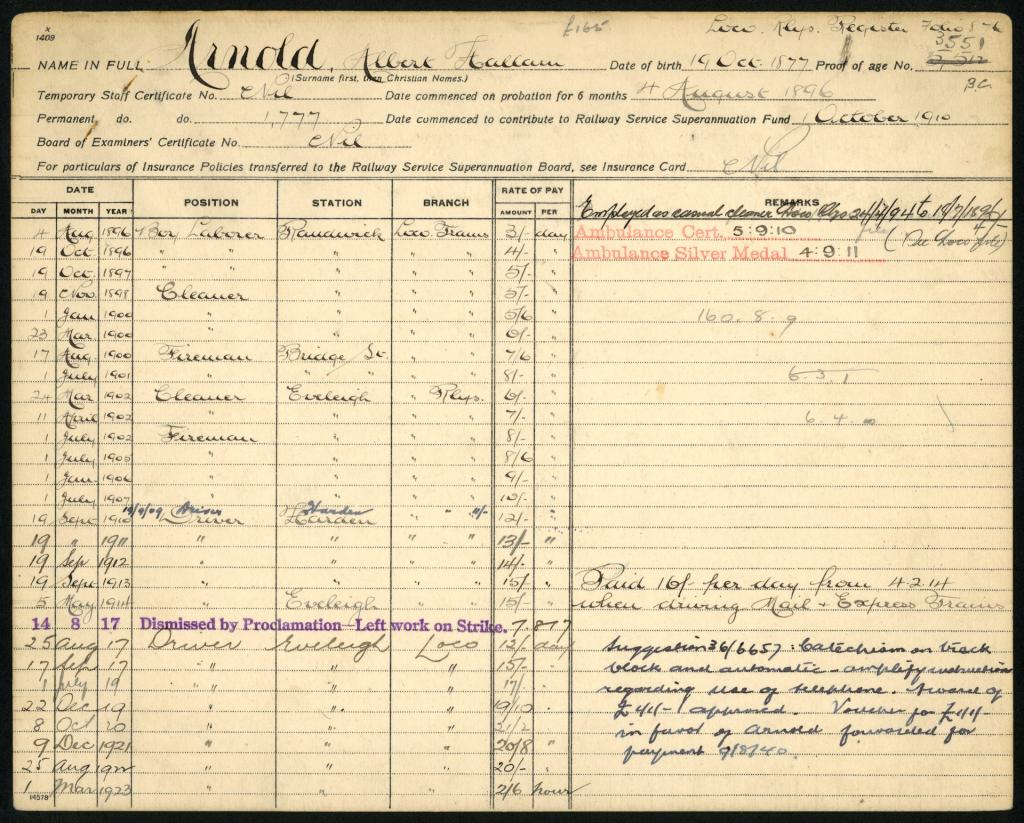 X
1409
£165
Loco. Rlys. Register Folio
3551
NAME IN FULL Arnold, Albert Hallam Date of birth 19 Oct. 1877 Proof of age No.
(Surname first, then Christian Names.)
B.C.
Temporary Staff Certificate No. Nil Date commenced on probation for 6 months 4 August 1896
Permanent do. do. 1,777 Date commenced to contribute to Railway Service Superannuation Fund 1 October 1910
Board of Examiners' Certificate No. Nil
For particulars of Insurance Policies transferred to the Railway Service Superannuation Board, see Insurance Card Nil
DATE POSITION STATION BRANCH RATE OF PAY REMARKS
DAY MONTH YEAR AMOUNT PER
Employed as casual cleaner Loco Rlys 24/4/94 to 19/7/1894
4 Aug 1896 Boy Laborer Randwick Loco. Trams 3/- day Ambulance Cert. 5:9:10 (See Loco file)
19 Oct 1896 " " " " 4/- " Ambulance Silver Medal 4:9:11
19 Oct 1897 " " " " 5/- "
19 Nov 1898 Cleaner " " " 5/- "
1 Jan 1900 " " " " 5/6 " 160. 8. 9
23 Mar 1900 " " " " 6/- "
17 Aug 1900 Fireman Bridge St. " " 7/6 "
1 July 1901 " " " " " 8/- " 6-3.1
24 Mar 1902 Cleaner Eveleigh " Rlys. 6/- "
11 April 1902 " " " " 7/- " 6. 4. 0
1 July 1902 Fireman " " " 8/- "
1 July 1905 " " " " 8/6 "
1 Jan 1906 " " " " 9/- "
1 July 1907 " " " " 10/- "
19/9/09 Driver Harden " " 11/-
19 Sept 1910 Driver Harden " " 12/- "
19 " 1911 " " " " 13/- "
19 Sep 1912 " " " " 14/- "
19 Sept 1913 " " " " 15/- " Paid 16/- per day from 4.2.14
5 May 1914 Eveleigh " " 15/- " when driving Mail + Express Trains
14 8 17 Dismissed by Proclamation—Left work on Strike. 7.8.17
25 Aug 17 Driver Eveleigh Loco 13/- day Suggestion 36/6657: Catechism on block
17 Sep 17 " " " 15/- " block and automatic - amplify instruction
1 July 19 " " " 17/- " regarding use of telephone. Award of
22 Dec 19 " " " 19/10 " £1/1/- approved. Voucher for £1/1/-
8 Oct 20 " " " 21/2 " in favor of Arnold forwarded for
9 Dec 1921 " " " 20/8 " payment 9/8/40.
25 Aug 1922 " " " 20/- "
1 Mar 1923 " " " 2/6 hour
14578